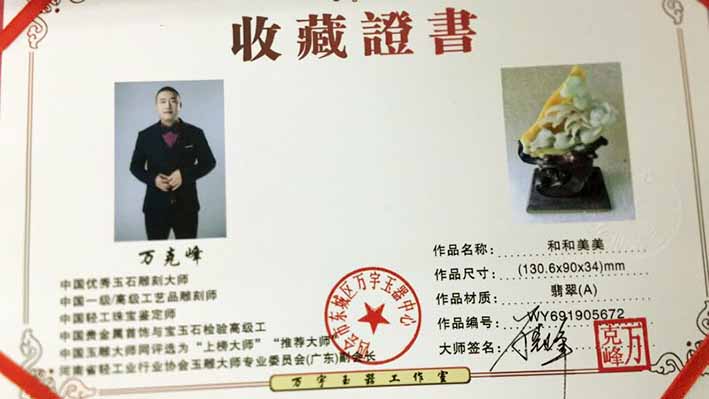 收藏證書
万克峰
中国优秀玉石雕刻大师
中国一级/高级工艺品雕刻师
中国轻工珠宝鉴定师
中国贵金属首饰与宝玉石检验高级工
中国玉雕大师网评选为“上榜大师”“推荐大师”
河南省轻工业行业协会玉雕大师专业委员会(广东)副会长
作品名称： 和和美美
作品尺寸： (130.6x90x34)mm
作品材质： 翡翠(A)
作品编号： WY691905672
大师签名：
万克峰
市东城区万宇玉器中心
万宇玉器工作室